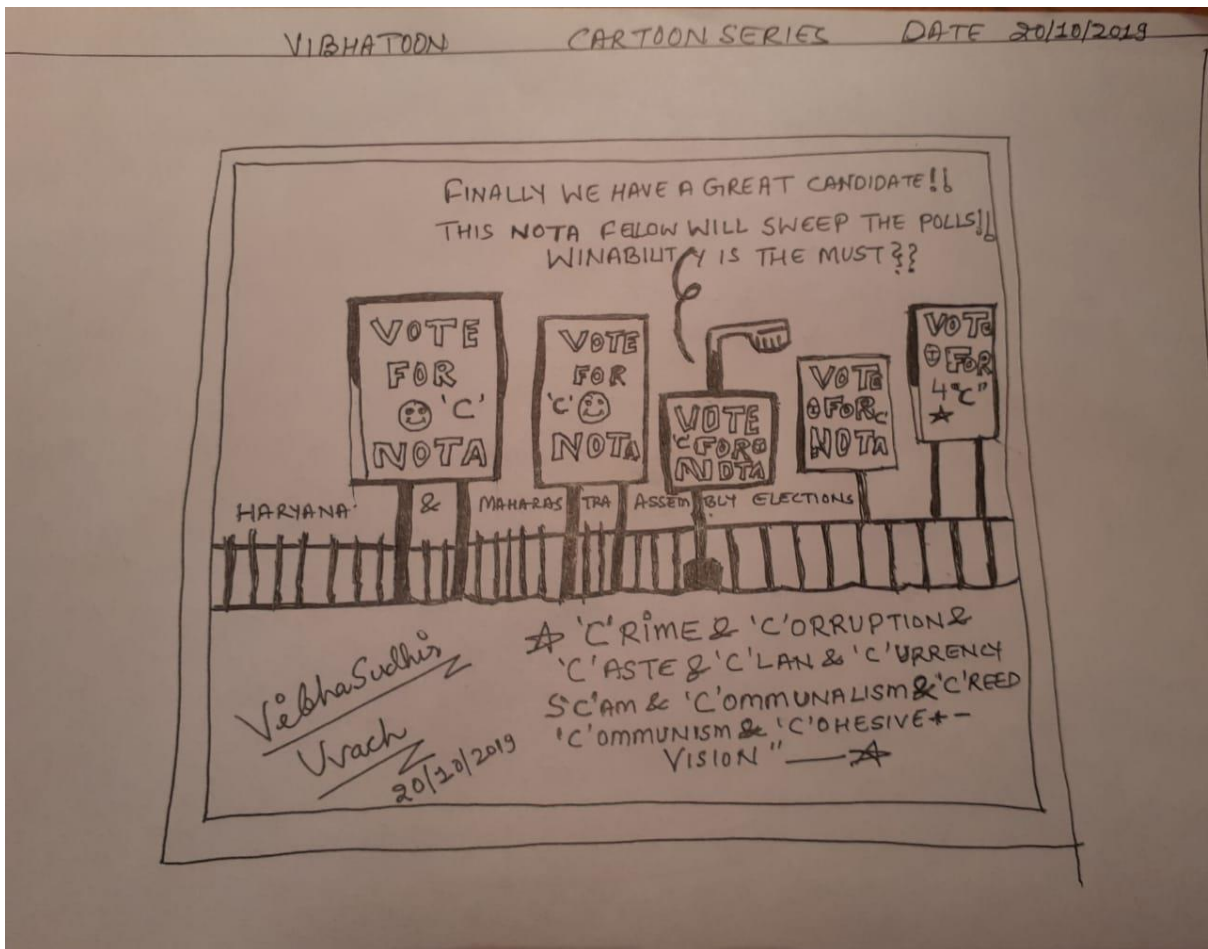 VIBHATOON CARTOON SERIES DATE 20/10/2019
FINALLY WE HAVE A GREAT CANDIDATE!!
THIS NOTA FELOW WILL SWEEP THE POLLS!!
WINABILITY IS THE MUST??
VOTE
FOR
'C'
NOTA
VOTE
FOR
'C'
NOTA
VOTE
'C' FOR
NOTA
VOTE
FOR C
NOTA
VOTE
FOR
4 "C"
☆
HARYANA & MAHARASTRA ASSEMBLY ELECTIONS
☆ 'C'RIME & 'C'ORRUPTION &
'C'ASTE & 'C'LAN & 'C'URRENCY
S'C'AM & 'C'OMMUNALISM & 'C'REED
'C'OMMUNISM & 'C'OHESIVE + -
VISION" — ☆
VibhaSudhir
Vrach
20/10/2019